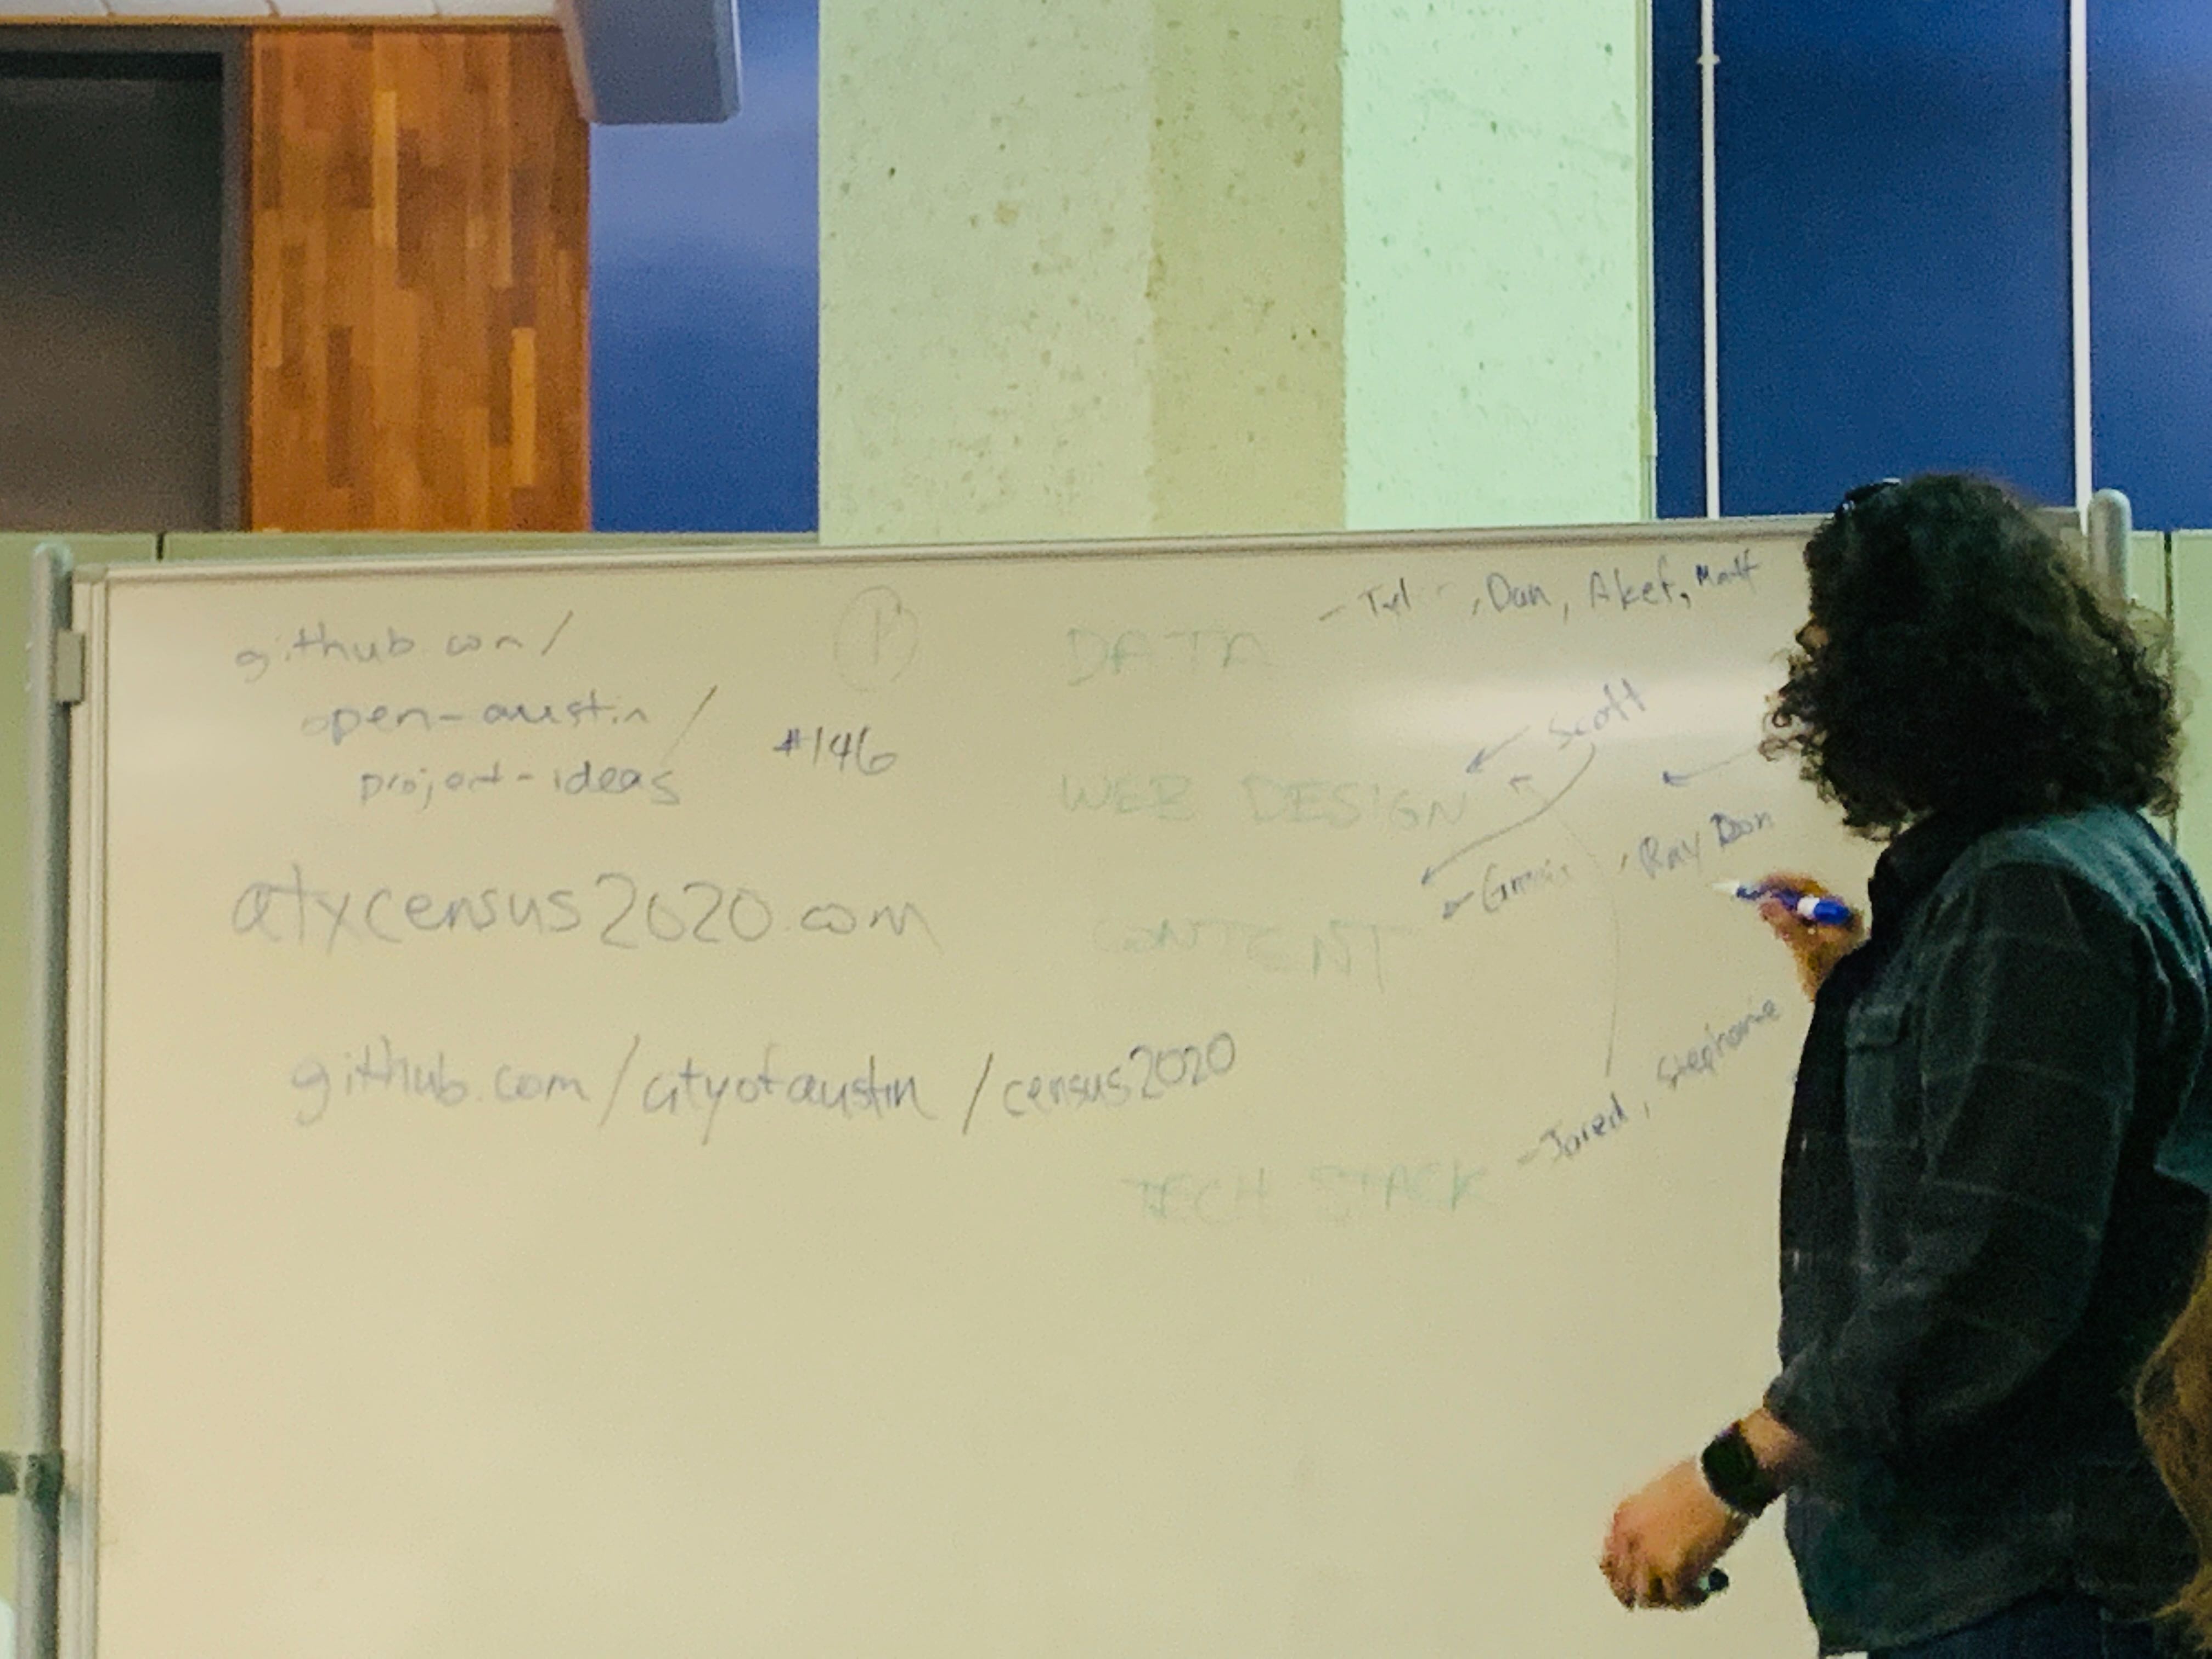 github.com/
open-austin/
project-ideas
#146
atxcensus2020.com
github.com/cityofaustin/census2020
P
DATA
- , Dan, Akef, Matt
Scott
WEB DESIGN
, Ray Dan
CONTENT
- Jared, Stephanie
TECH STACK